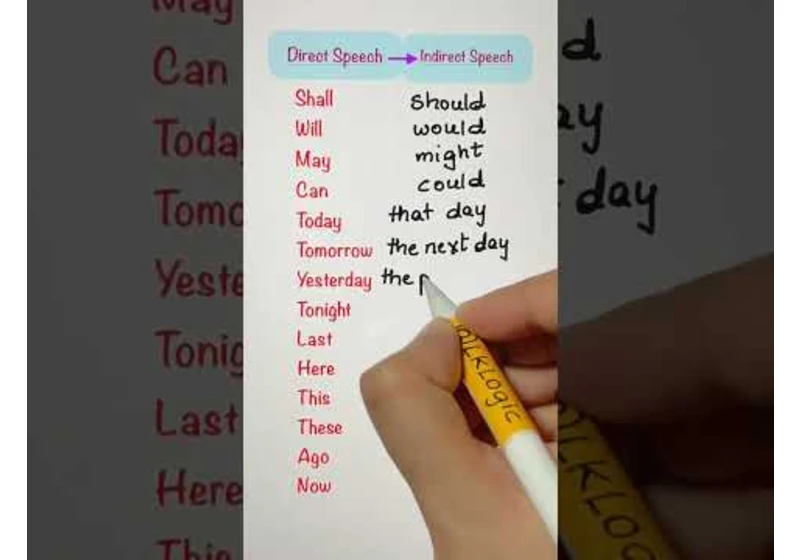 Direct Speech → Indirect Speech
Shall should
Will would
May might
Can could
Today that day
Tomorrow the next day
Yesterday the p
Tonight
Last
Here
This
These
Ago
Now